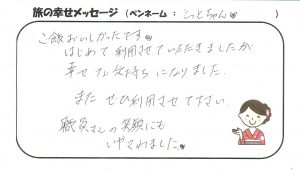 旅の幸せメッセージ (ペンネーム : とっとちゃん )
ご飯おいしかったです
はじめて利用させていただきましたが
幸せな気持ちになりました.
また ぜひ利用させて下さい.
職員さんの笑顔にも
いやされました